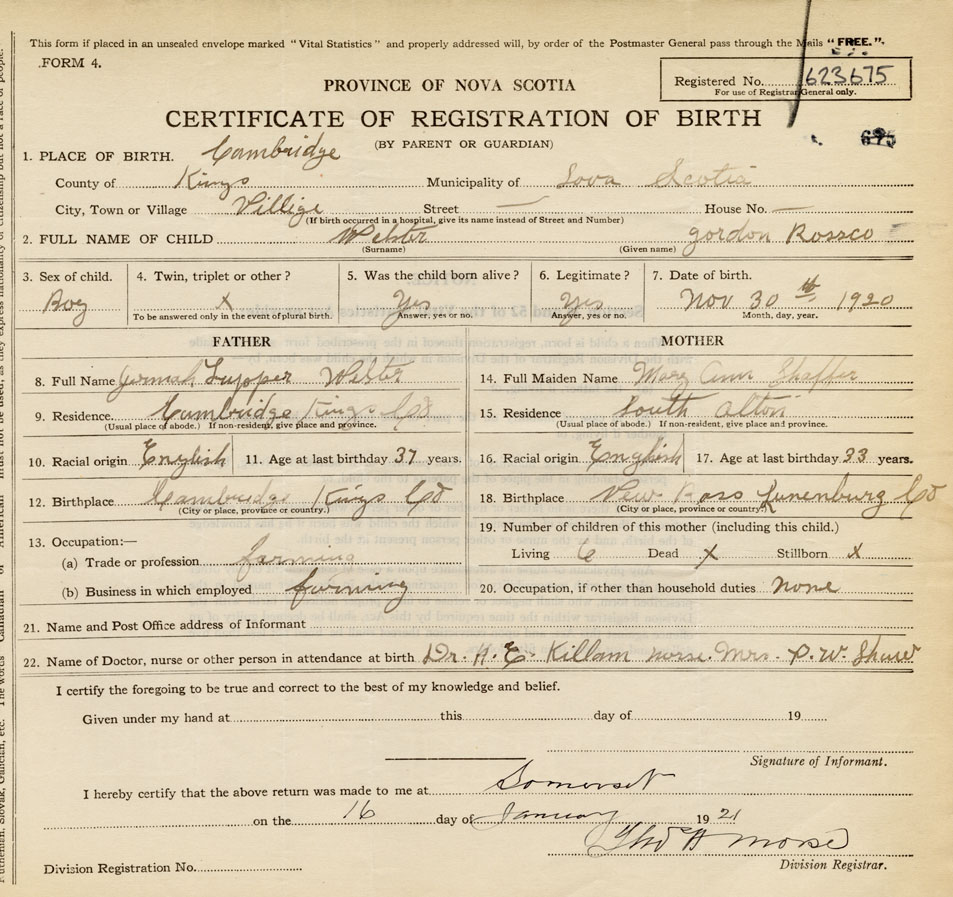 This form if placed in an unsealed envelope marked "Vital Statistics" and properly addressed will, by order of the Postmaster General pass through the Mails "FREE."
FORM 4.
PROVINCE OF NOVA SCOTIA
Registered No. 623675
For use of Registrar General only.
CERTIFICATE OF REGISTRATION OF BIRTH
(BY PARENT OR GUARDIAN)
675
1. PLACE OF BIRTH. Cambridge
County of Kings Municipality of Nova Scotia
City, Town or Village Villige Street — House No. —
(If birth occurred in a hospital, give its name instead of Street and Number)
2. FULL NAME OF CHILD Webster gordon Rossco
(Surname) (Given name)
3. Sex of child. 4. Twin, triplet or other? 5. Was the child born alive? 6. Legitimate? 7. Date of birth.
Boy X Yes Yes Nov 30 th 1920
To be answered only in the event of plural birth. Answer, yes or no. Answer, yes or no. Month, day, year.
FATHER MOTHER
8. Full Name Tupper Webster
14. Full Maiden Name Mary Ann Shaffer
9. Residence Cambridge Kings Co
(Usual place of abode.) If non-resident, give place and province.
15. Residence South Alton
(Usual place of abode.) If non-resident, give place and province.
10. Racial origin English 11. Age at last birthday 37 years.
16. Racial origin English 17. Age at last birthday 33 years.
12. Birthplace Cambridge Kings Co
(City or place, province or country.)
18. Birthplace New Ross Lunenburg Co
(City or place, province or country.)
13. Occupation:—
(a) Trade or profession farming
(b) Business in which employed farming
19. Number of children of this mother (including this child.)
Living 6 Dead X Stillborn x
20. Occupation, if other than household duties none
21. Name and Post Office address of Informant
22. Name of Doctor, nurse or other person in attendance at birth Dr. H. E. Killam norse. Mrs. P. W.
I certify the foregoing to be true and correct to the best of my knowledge and belief.
Given under my hand at this day of 19
Signature of Informant.
I hereby certify that the above return was made to me at Somerset
on the 16 day of January 19 21
Tho H Morse
Division Registration No. Division Registrar.